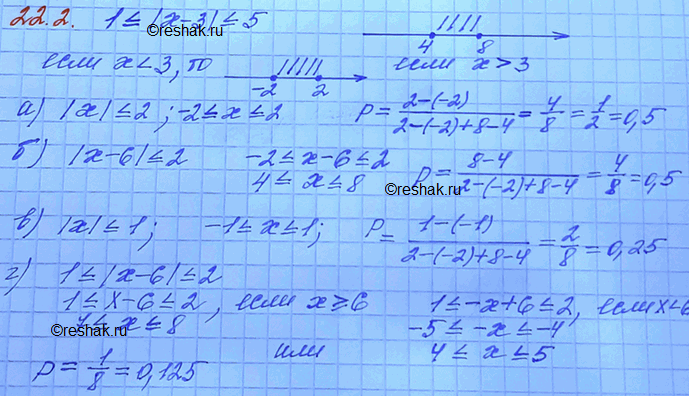 22.2. 1 ≤ |x-3| ≤ 5
©reshak.ru
4 8
если x<3, то -2 2 если x>3
а) |x| ≤ 2 ; -2 ≤ x ≤ 2 P = 2-(-2)/2-(-2)+8-4 = 4/8 = 1/2 = 0,5
б) |x-6| ≤ 2 -2 ≤ x-6 ≤ 2 P = 8-4/2-(-2)+8-4 = 4/8 = 0,5
4 ≤ x ≤ 8 ©reshak.ru
в) |x| ≤ 1; -1 ≤ x ≤ 1; P = 1-(-1)/2-(-2)+8-4 = 2/8 = 0,25
г) 1 ≤ |x-6| ≤ 2
1 ≤ x-6 ≤ 2, если x ≥ 6 1 ≤ -x+6 ≤ 2, если x<6
7 ≤ x ≤ 8 -5 ≤ -x ≤ -4
©reshak.ru
или 4 ≤ x ≤ 5
P = 1/8 = 0,125